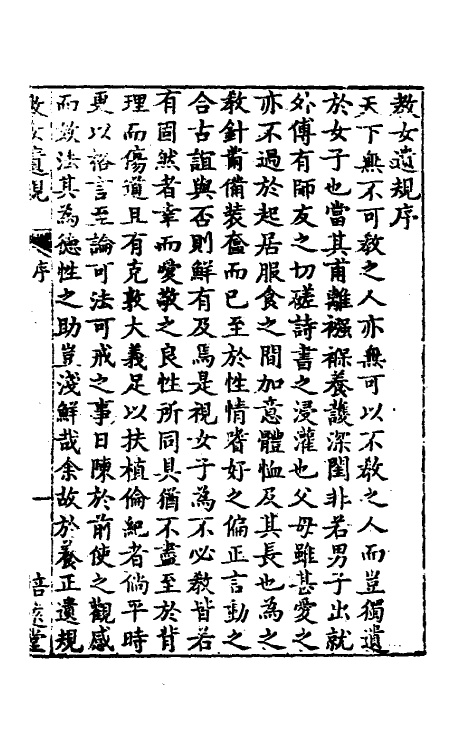 教女遺規序
天下無不可教之人亦無可以不教之人而豈獨遺
於女子也當其甫離襁褓養護深閨非若男子出就
外傅有師友之切磋詩書之浸灌也父母雖甚愛之
亦不過於起居服食之間加意體恤及其長也為之
教針黹備裝奩而已至於性情嗜好之偏正言動之
合古誼與否則鮮有及焉是視女子為不必教皆若
有固然者幸而愛敬之良性所同具猶不盡至於背
理而傷道且有克敦大義足以扶植倫紀者倘平時
更以格言至論可法可戒之事日陳於前使之觀感
而效法其為德性之助豈淺鮮哉余故於養正遺規
教女遺規 序 一 培遠堂